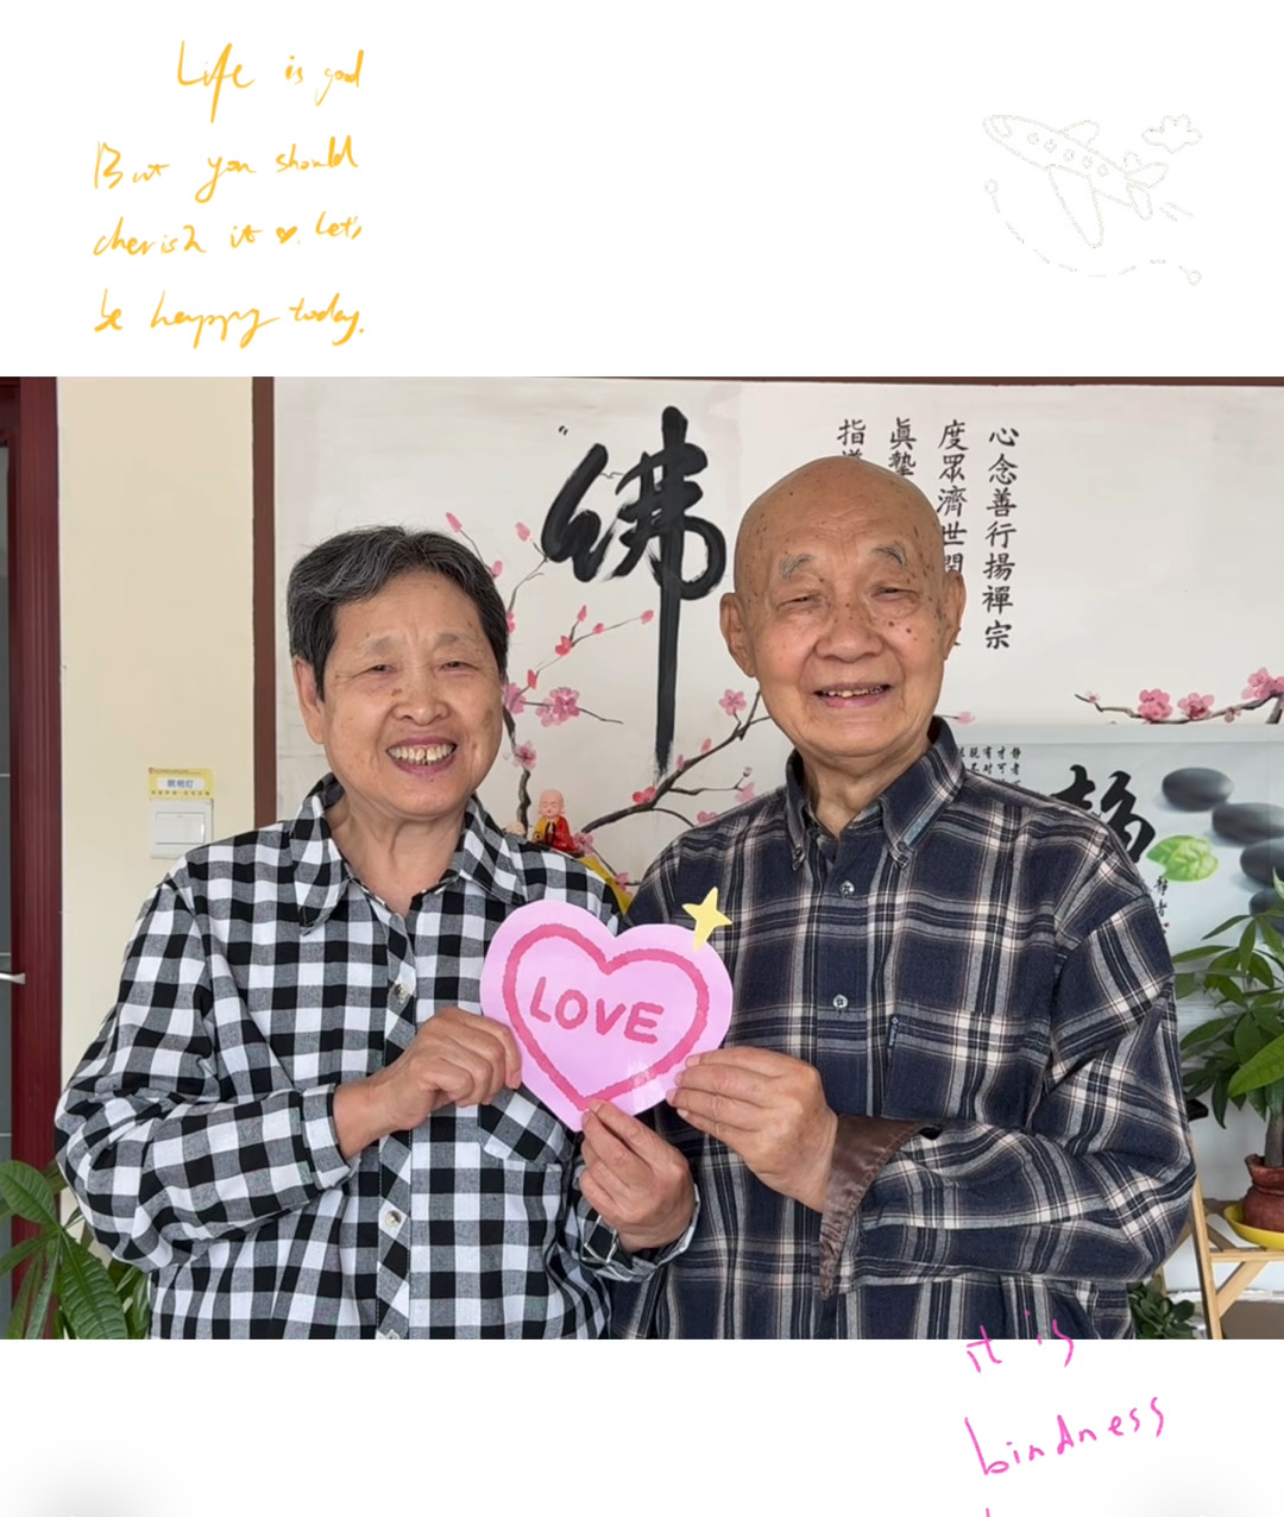 Life is good
But you should
cherish it ♥. Let's
be happy today.
佛
心念善行揚禪宗
度眾濟世
眞摯
指
LOVE
照明灯
静者
才可
有对
it is
bindness